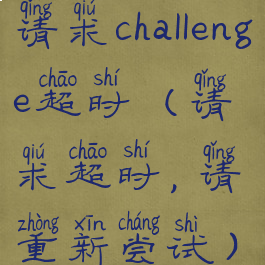 qǐng qiú
请求challeng
chāo shí qǐng
e超时（请
qiú chāo shí qǐng
求超时,请
zhòng xīn cháng shì
重新尝试）